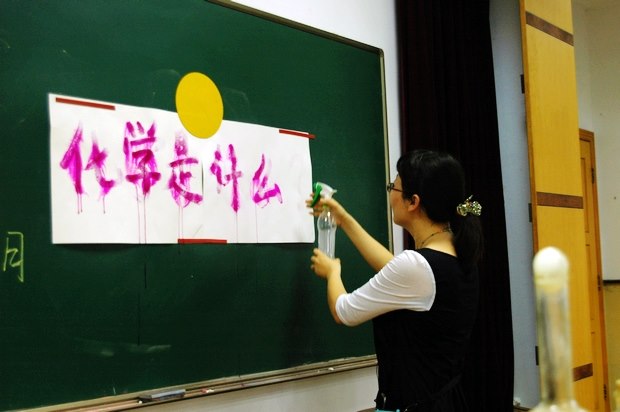 化学是什么
月